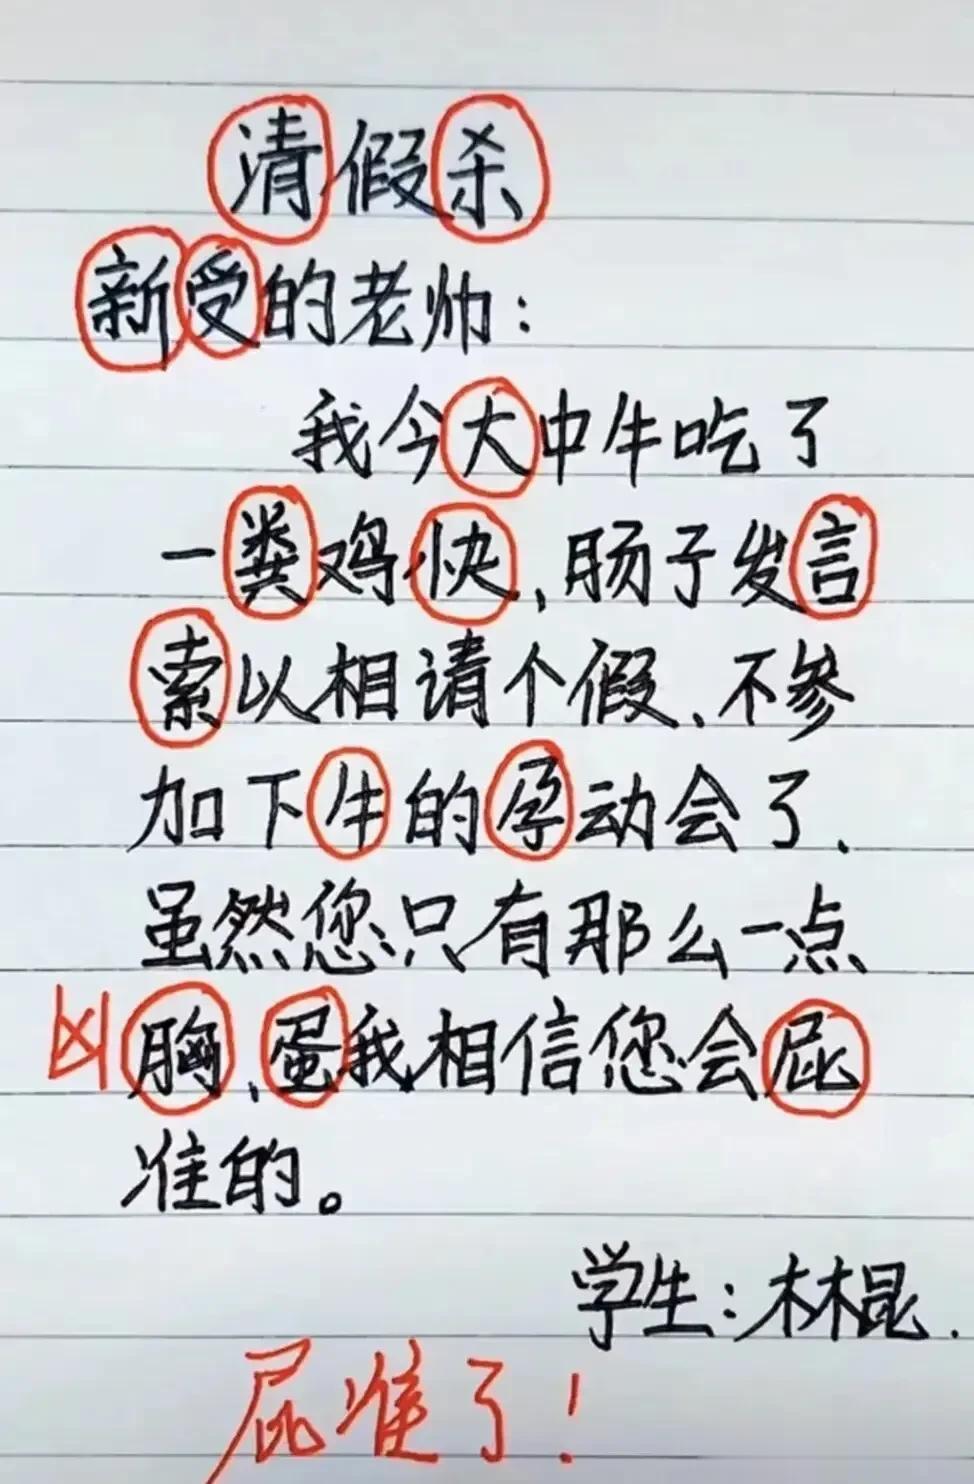 清假杀
新受的老帅：
我今大中牛吃了
一粪鸡快、肠子发言
索以相请个假、不参
加下牛的孕动会了.
虽然您只有那么一点
凶胸、蛋我相信您会屁
准的。
学生：林昆.
屁准了！